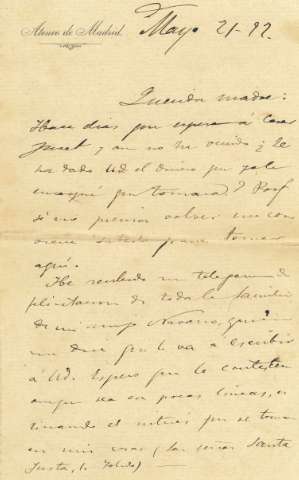 Ateneo de Madrid.
Mayo 21-92.
Querida madre:
Hace días que espero á Cesar
y aun no ha venido ¿Le
ha dado Ud el dinero que yo le
encargué que tomara? Porq.
si no piensa volver me con
para tomar
aquí.
He recibido un telegrama de
felicitacion de toda la familia
de mi amigo Navarro, quien
me dice que le va a escribir
á Ud. Espero que le conteste
aunque sea en pocas lineas, es
timando el interés que se toma
en mis cosas (las señas Santa
Justa, 6, Toledo) —